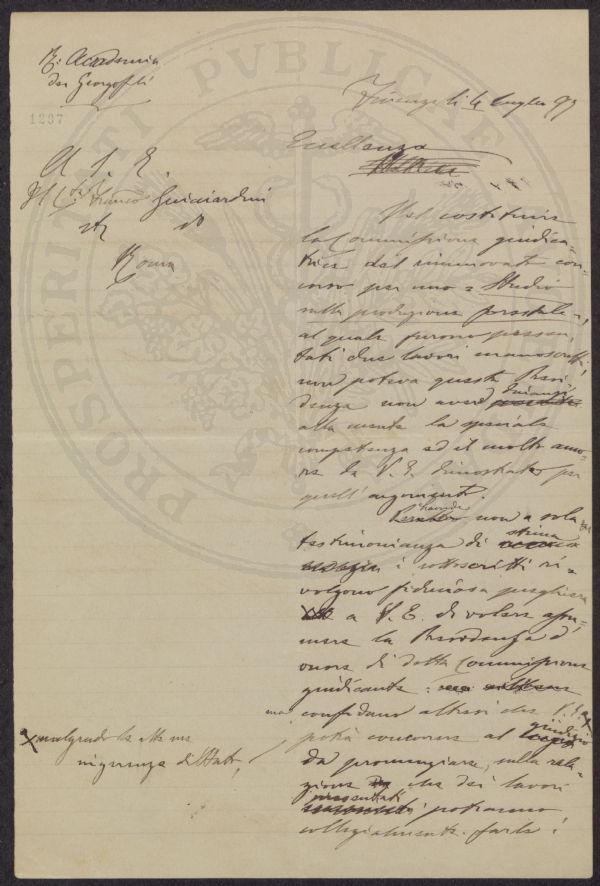 R. Accademia
dei Georgofili
1297
Firenze li 4 Luglio 93
A S. E.
Il Cte Franco Guicciardini
Roma
Eccellenza
Nel costituire
la Commissione giudica-
trice del rinnovato con-
corso per uno "Studio
sulla produzione forestale",
al quale furono presen-
tati due lavori manoscritti
non poteva questa Presi-
denza non avere dinanzi
alla mente la speciale
competenza ed il molto amo-
re da V. E. dimostrato per
quell'argomento.
non a sola
testimonianza di stima
i sottoscritti ri-
volgono fiduciosa preghiera
a V. E. di volere assu-
mere la Presidenza d'
onore di detta Commissione
giudicante:
confidano altresì che V. E.
potrà concorrere al giudizio
da pronunziare, sulla rela-
zione che dei lavori
presentati potranno
collegialmente farle!
malgrado le
di Stato,
PROSPERITATI PVBLICAE